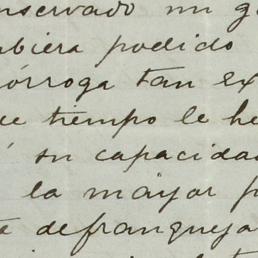 nservado mi g
ubiera podido
órroga tan ex
ue tiempo le he
su capacidad
la mayor p
te defranqueja